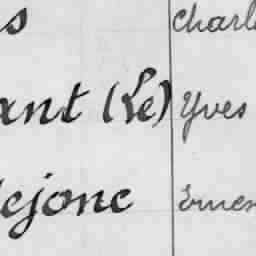 s Charl
ant (Le) Yves
lejonc Ernes